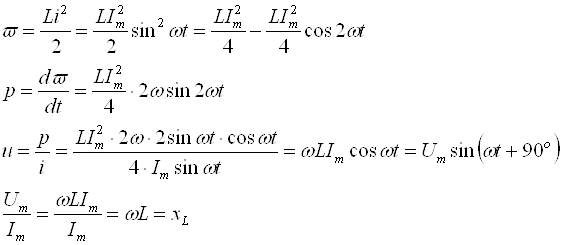 ϖ = Li²/2 = LI²ₘ/2 sin² ωt = LI²ₘ/4 − LI²ₘ/4 cos 2ωt
p = dϖ/dt = LI²ₘ/4 · 2ω sin 2ωt
u = p/i = LI²ₘ · 2ω · 2sin ωt · cos ωt / 4 · Iₘ sin ωt = ωLIₘ cos ωt = Uₘ sin(ωt + 90°)
Uₘ/Iₘ = ωLIₘ/Iₘ = ωL = x_L